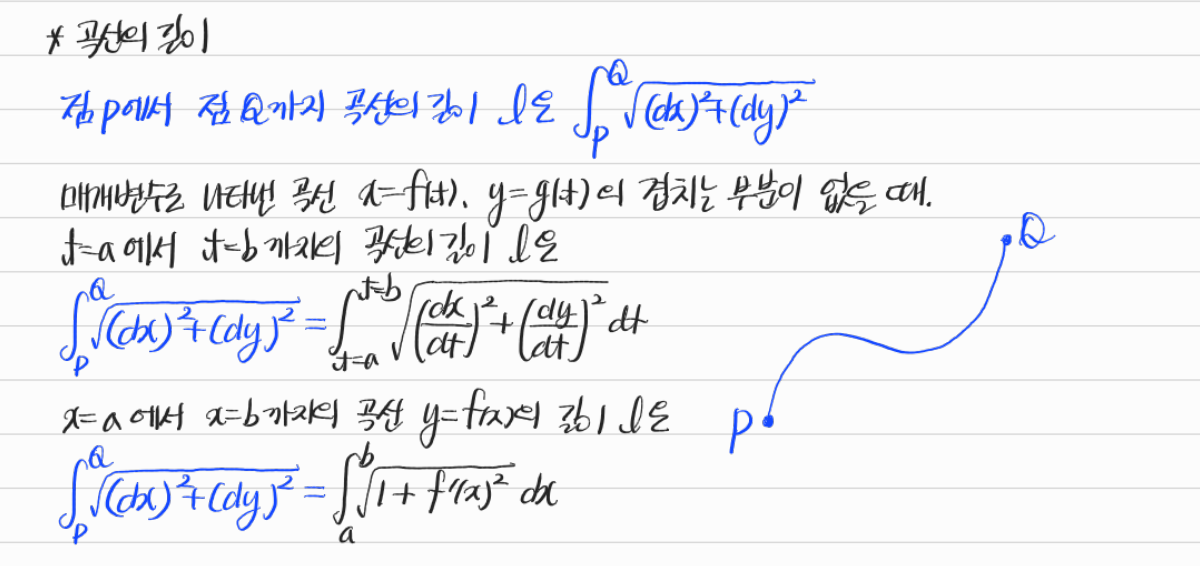 * 곡선의 길이
점 P에서 점 Q까지 곡선의 길이 l은 ∫_P^Q √((dx)²+(dy)²)
매개변수로 나타낸 곡선 x=f(t), y=g(t)의 겹치는 부분이 없을 때.
t=a에서 t=b까지의 곡선의 길이 l은
∫_P^Q √((dx)²+(dy)²) = ∫_{t=a}^{t=b} √((dx/dt)²+(dy/dt)²) dt
x=a에서 x=b까지의 곡선 y=f(x)의 길이 l은
∫_P^Q √((dx)²+(dy)²) = ∫_a^b √(1+f'(x)²) dx
Q
P